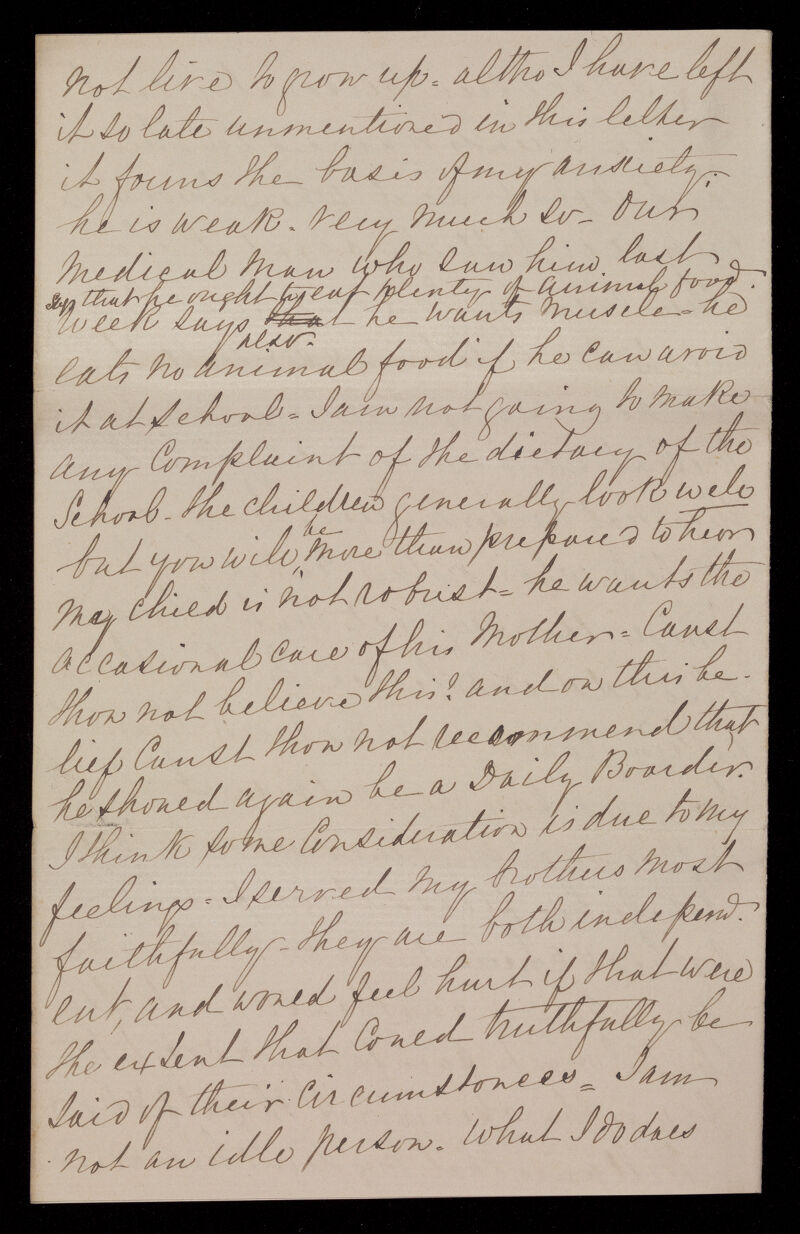 not live to grow up = altho I have left
it so late unmentioned in this letter
it forms the basis of my anxiety.
he is weak. very much so - Our
Medical Man who saw him last
says that he ought to eat plenty of animal food.
week says that he wants muscle = he
also.
eats no animal food if he can avoid
it at school = I am not going to make
any Complaint of the dietary of the
School - the children generally look well
be
but you will more than prepared to hear
my child is not robust = he wants the
occasional care of his Mother = Canst
thou not believe this? and on this be-
lief Canst thou not recommend that
he should again be a Daily Boarder.
I think some Consideration is due to my
feelings = I served my brothers most
faithfully - they are both independ.
ent, and would feel hurt if that were
the extent that Could truthfully be
said of their Circumstances = I am
not an idle person. What I do does